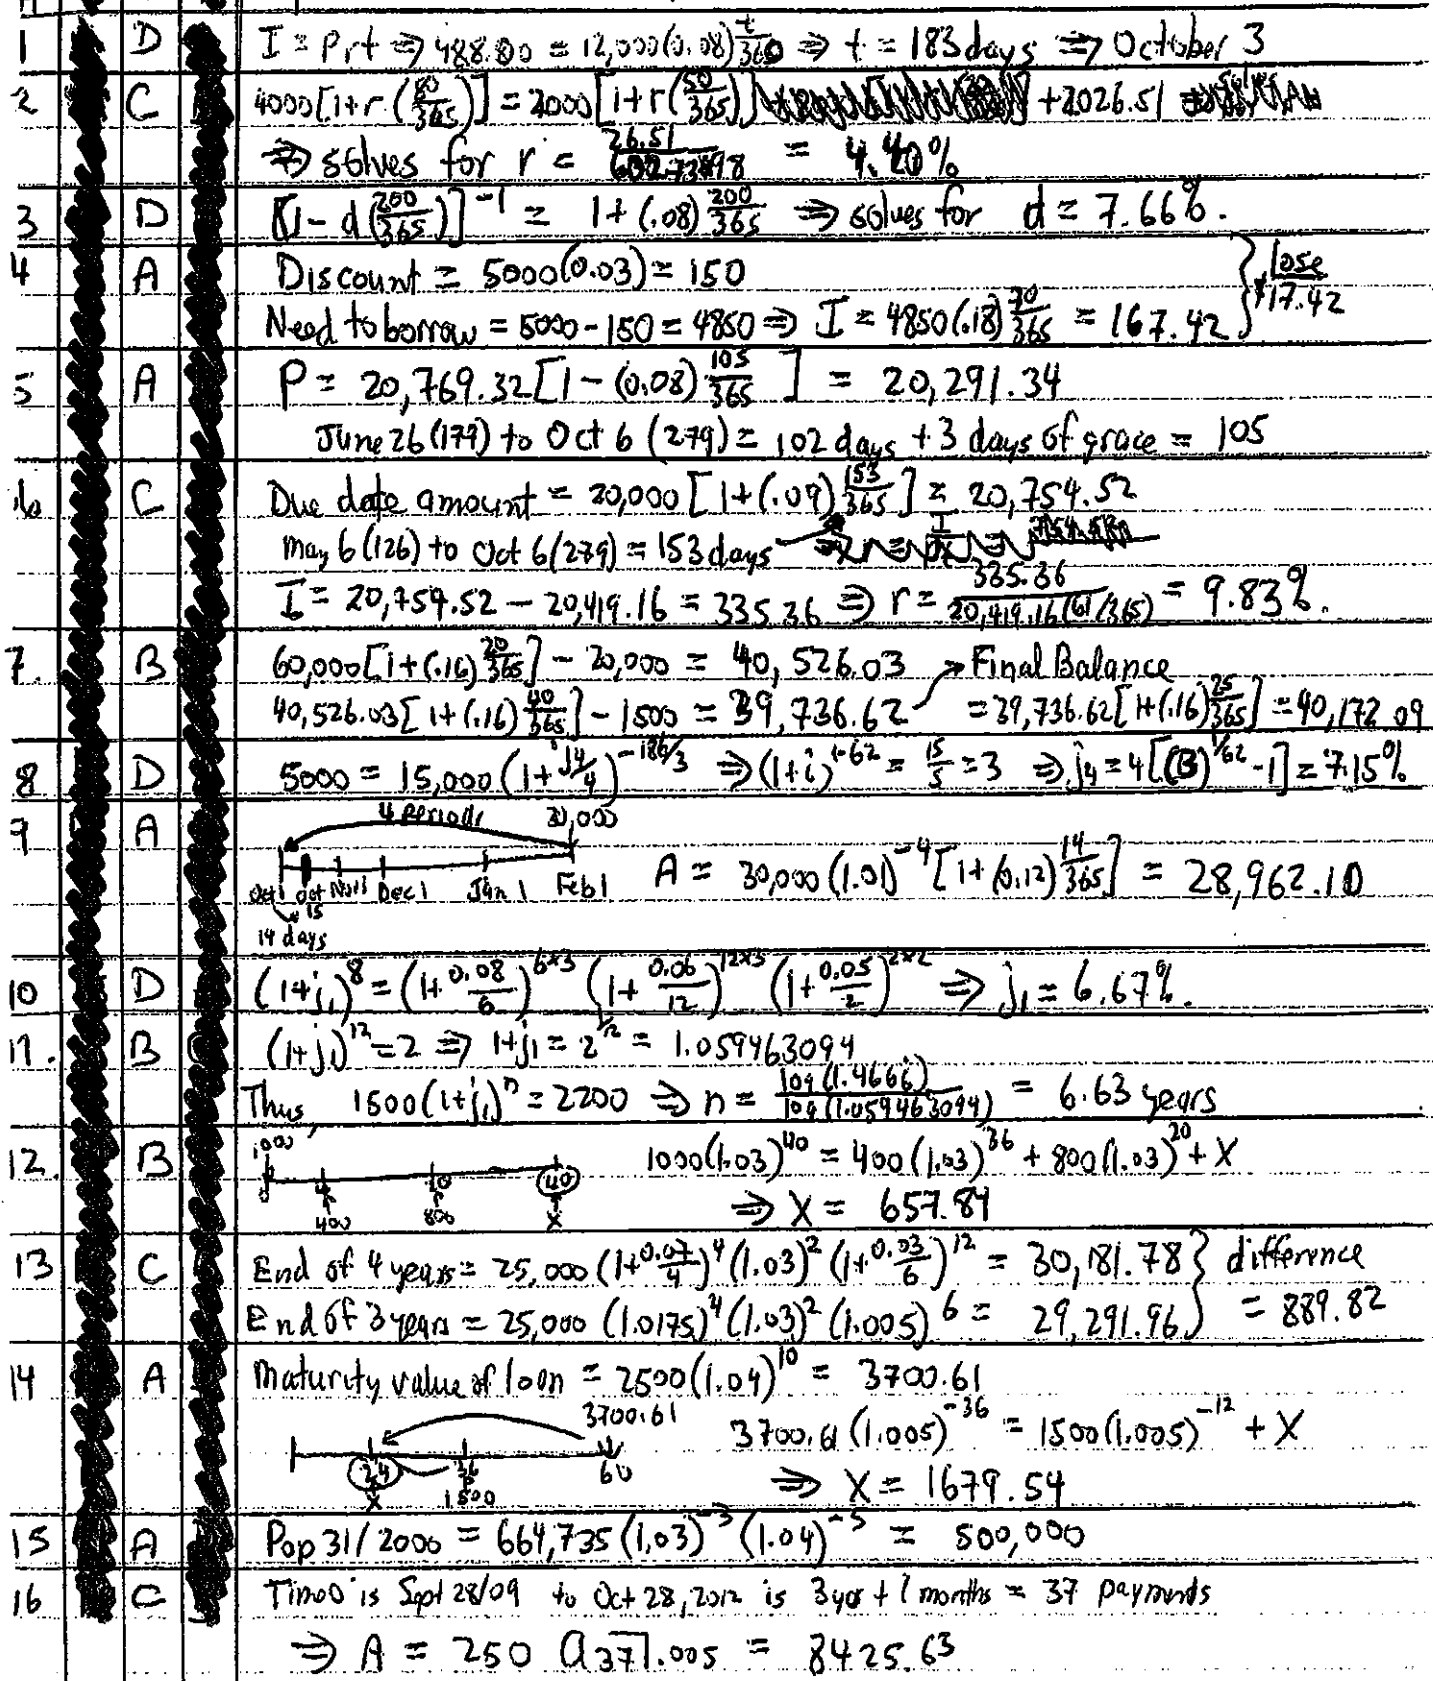 1 D I = Prt ⇒ 488.80 = 12,000(0.08) t/360 ⇒ t = 183 days ⇒ October 3
2 C 4000[1+r(80/365)] = 2000[1+r(50/365)] +2026.51
⇒ solves for r = 26.51/602.73998 = 4.40%
3 D [1-d(200/365)]^-1 = 1+(.08) 200/365 ⇒ solves for d = 7.66%.
4 A Discount = 5000(0.03) = 150
Need to borrow = 5000-150 = 4850 ⇒ I = 4850(.18) 70/365 = 167.42 } lose $17.42
5 A P = 20,769.32[1-(0.08) 105/365] = 20,291.34
June 26 (177) to Oct 6 (279) = 102 days + 3 days of grace = 105
6 C Due date amount = 20,000[1+(.09) 153/365] = 20,754.52
May 6 (126) to Oct 6 (279) = 153 days
I = 20,754.52 - 20,419.16 = 335.36 ⇒ r = 335.36/20,419.16(61/365) = 9.83%.
7. B 60,000[1+(.16) 20/365] - 20,000 = 40,526.03 Final Balance
40,526.03[1+(.16) 40/365] - 1500 = 39,736.62 = 39,736.62[1+(.16) 25/365] = 40,172.09
8 D 5000 = 15,000(1+j4/4)^-186/3 ⇒ (1+i)^+62 = 15/5 = 3 ⇒ j4 = 4[(3)^1/62 -1] = 7.15%
9 A 4 periods 30,000
A = 30,000(1.01)^-4[1+(0.12) 14/365] = 28,962.10
Oct 1 Oct 15 Nov 1 Dec 1 Jan 1 Feb 1
14 days
10 D (1+j1)^8 = (1+0.08/6)^6×3 (1+0.06/12)^12×3 (1+0.05/2)^2×2 ⇒ j1 = 6.67%.
11. B (1+j1)^12 = 2 ⇒ 1+j1 = 2^1/12 = 1.059463094
Thus, 1500(1+j1)^n = 2200 ⇒ n = log(1.4666)/log(1.059463094) = 6.63 years
12. B 1000 1000(1.03)^40 = 400(1.03)^36 + 800(1.03)^20 + X
0 4 20 40
400 800 X ⇒ X = 657.84
13 C End of 4 years = 25,000(1+0.07/4)^4(1.03)^2(1+0.03/6)^12 = 30,181.78 } difference
End of 3 years = 25,000(1.0175)^4(1.03)^2(1.005)^6 = 29,291.96 = 889.82
14 A Maturity value of loan = 2500(1.04)^10 = 3700.61
3700.61 3700.61(1.005)^-36 = 1500(1.005)^-12 + X
24 36 60
X 1500 ⇒ X = 1679.54
15 A Pop 31/2000 = 664,735(1.03)^-3(1.04)^-5 = 500,000
16 C Time 0 is Sept 28/09 to Oct 28, 2012 is 3 yrs + 1 months = 37 payments
⇒ A = 250 a37|.005 = 8425.63